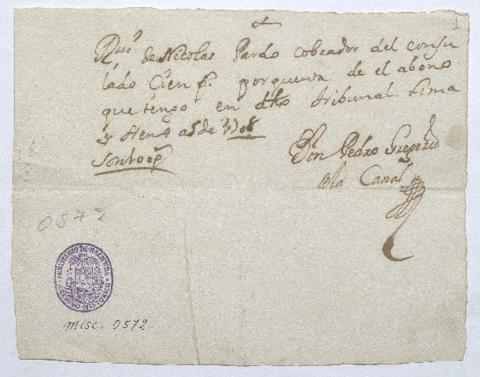 1
+
de Nicolas Pardo cobrador del consu
lado Cien p.s por quenta de el abono
que tengo en dho tribunal Lima
y Hen.o a 5 de 1708
Son 100 p.s
Don Pedro Gregorio
de la Canal
0572
MINISTERIO DE HACIENDA
ARCHIVO HISTORICO
misc. 0572